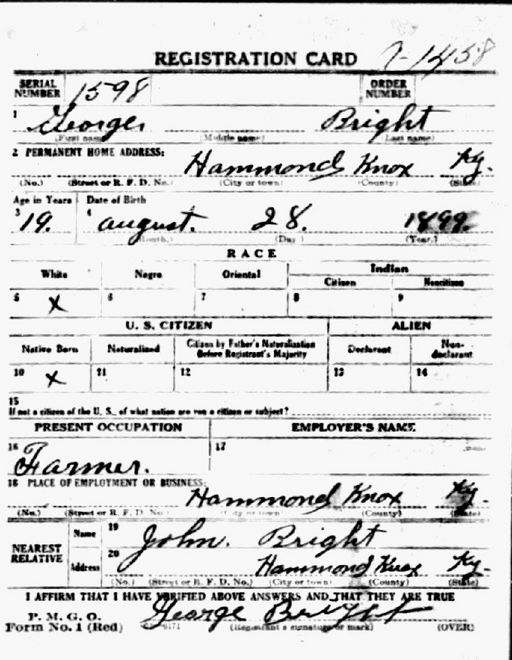 REGISTRATION CARD
SERIAL NUMBER 1598 ORDER NUMBER
1 George Bright
(First name) (Middle name) (Last name)
2 PERMANENT HOME ADDRESS: Hammond Knox Ky.
(No.) (Street or R. F. D. No.) (City or town) (County) (State)
Age in Years Date of Birth
3 19. 4 August. 28. 1899.
(Month.) (Day) (Year.)
RACE
White Negro Oriental Indian
Citizen Noncitizen
5 X 6 7 8 9
U. S. CITIZEN ALIEN
Native Born Naturalized Citizen by Father's Naturalization Before Registrant's Majority Declarant Non-declarant
10 X 11 12 13 14
15
If not a citizen of the U. S., of what nation are you a citizen or subject?
PRESENT OCCUPATION EMPLOYER'S NAME
16 Farmer. 17
18 PLACE OF EMPLOYMENT OR BUSINESS: Hammond Knox Ky.
(No.) (Street or R. F. D. No.) (City or town) (County) (State)
NEAREST RELATIVE Name 19 John. Bright
Address 20 Hammond Knox Ky-
(No.) (Street or R. F. D. No.) (City or town) (County) (State)
I AFFIRM THAT I HAVE VERIFIED ABOVE ANSWERS AND THAT THEY ARE TRUE
P. M. G. O. George Bright
Form No. 1 (Red) (Registrant's signature or mark) (OVER)